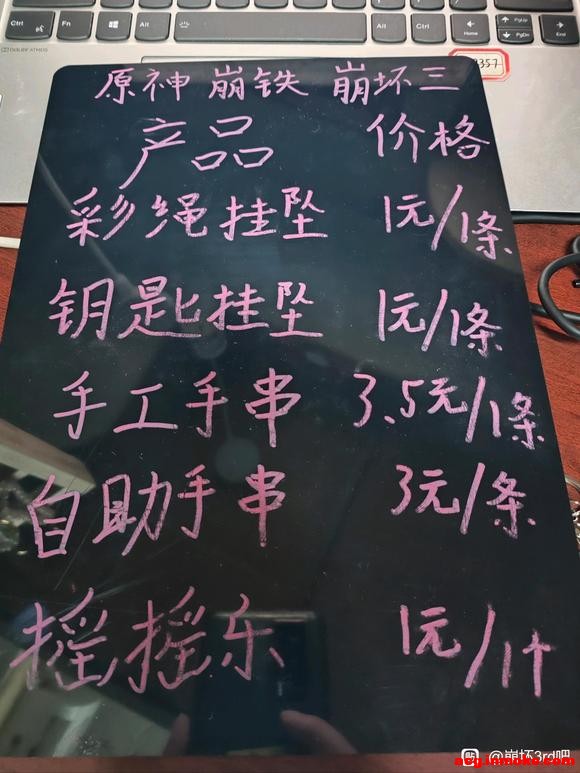 Ctrl
Fn
Alt
Alt
Ctrl
Home
PgUp
PgDn
End
DOLBY ATMOS
357
原神 崩铁 崩坏三
产品 价格
彩绳挂坠 1元/1条
钥匙挂坠 1元/1条
手工手串 3.5元/1条
自助手串 3元/条
摇摇乐 1元/1个
@崩坏3rd吧
acginmoke.com